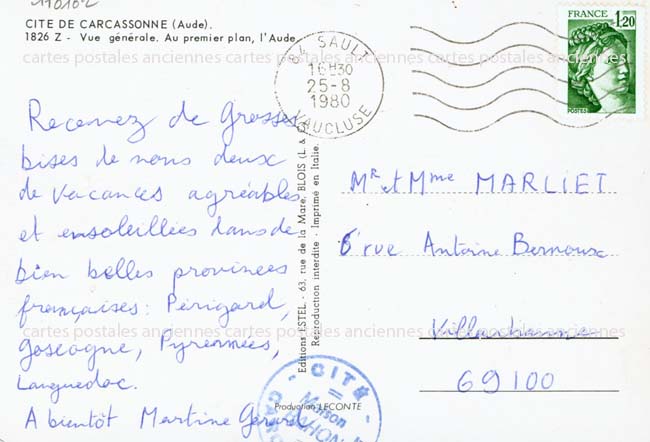 CITE DE CARCASSONNE (Aude).
1826 Z - Vue générale. Au premier plan, l'Aude
cartes postales anciennes cartes postales anciennes cartes postales anciennes
84 SAULT
16H30
25-8
1980
VAUCLUSE
FRANCE
1,20
POSTES
Recevez de Grosses
bises de nous deux
de vacances agréables
et ensoleillées dans de
bien belles provinces
françaises: Périgord,
gascogne, Pyrénnées,
Languedoc.
A bientôt Martine Gérard
Editions ESTEL. - 63, rue de la Mare, BLOIS (L. &
Reproduction interdite - Imprimé en Italie.
Mr et Mme MARLIET
6 rue Antoine
Villeurbanne
69100
cartes postales anciennes cartes postales anciennes cartes postales anciennes
Production LECONTE
CITÉ
Maison